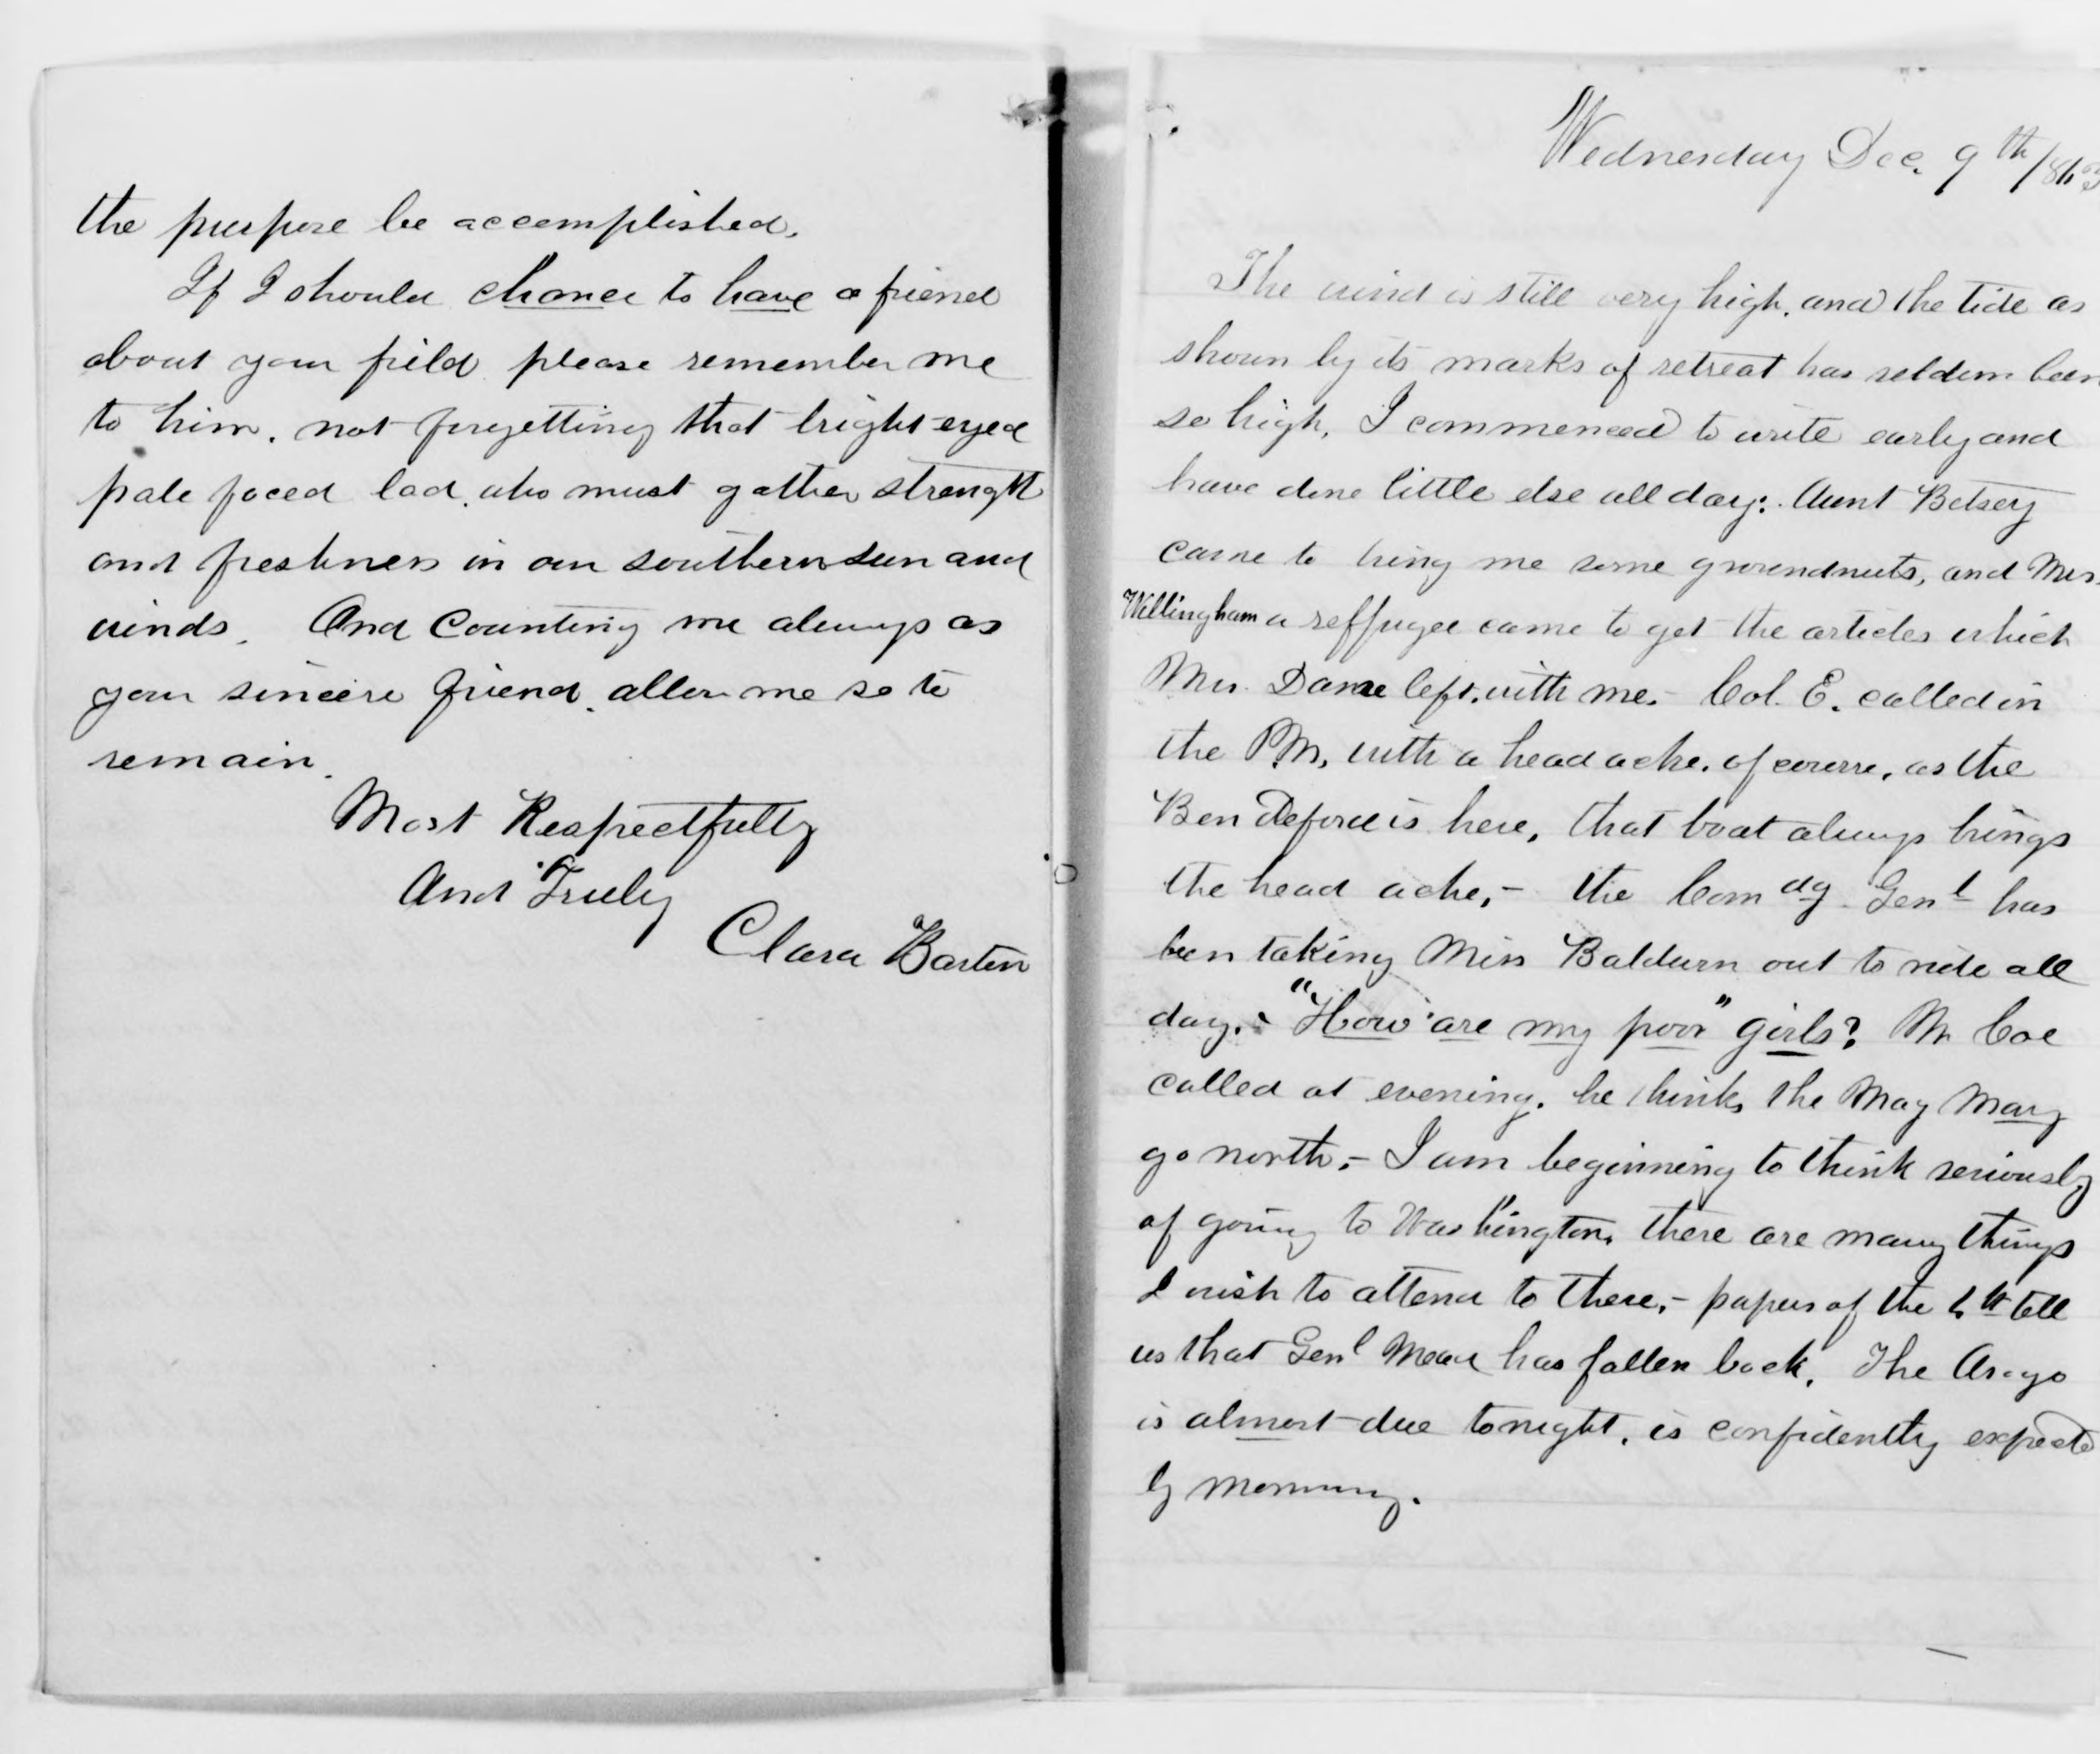 the purpose be accomplished.
If I should chance to have a friend
about your field please remember me
to him, not forgetting that bright-eyed
pale faced lad, who must gather strength
and freshness in our southern sun and
winds. And Counting me always as
your sincere friend, allow me so to
remain.
Most Respectfully
And Truly
Clara Barton
Wednesday Dec. 9th 1863
The wind is still very high, and the tide as
shown by its marks of retreat has seldom been
so high, I commenced to write early and
have done little else all day: Aunt Betsey
came to bring me some groundnuts, and Mrs.
Willingham a reffugee came to get the articles which
Mrs. Dame left with me. - Col. E. called in
the P.M, with a head ache, of course, as the
Ben Deford is here, that boat always brings
the head ache, - the Comdg Genl has
been taking Miss Baldwin out to ride all
day. - "How are my poor" girls? Mr Coe
called at evening. he thinks the May Mary
go north, - I am beginning to think seriously
of going to Washington, there are many things
I wish to attend to there, - papers of the 4th tell
us that Genl Mead has fallen back, The Arago
is almost due tonight, is confidently expected
by morning.